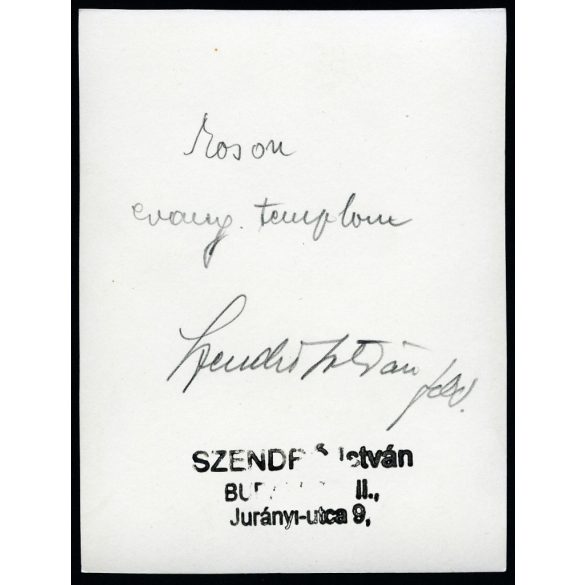 Moson
evang. templom
Szendrő István
felv.
SZENDRŐ István
BUDAPEST II.,
Jurányi-utca 9,